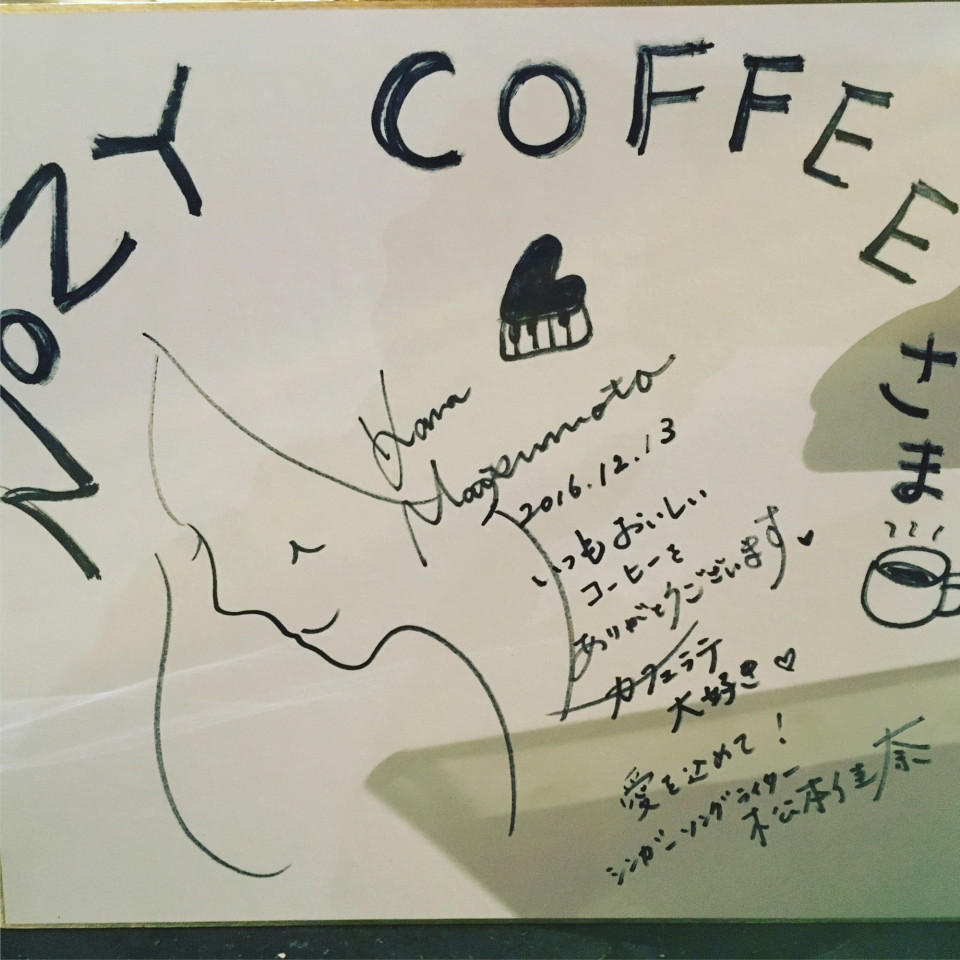 NOZY COFFEE
さま
Kana
Matsumoto
2016.12.13
いつもおいしい
コーヒーを
ありがとうございます♥
カフェラテ
大好き♡
愛を込めて！
シンガーソングライター
松本佳奈